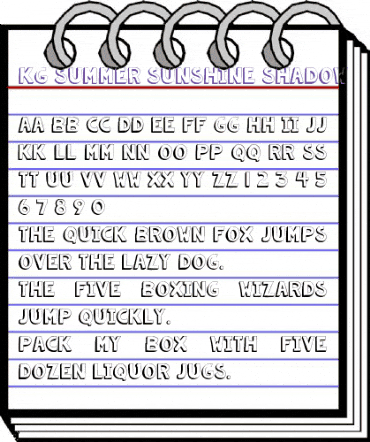 KG SUMMER SUNSHINE SHADOW
AA BB CC DD EE FF GG HH II JJ
KK LL MM NN OO PP QQ RR SS
TT UU VV WW XX YY ZZ 1 2 3 4 5
6 7 8 9 0
THE QUICK BROWN FOX JUMPS
OVER THE LAZY DOG.
THE FIVE BOXING WIZARDS
JUMP QUICKLY.
PACK MY BOX WITH FIVE
DOZEN LIQUOR JUGS.